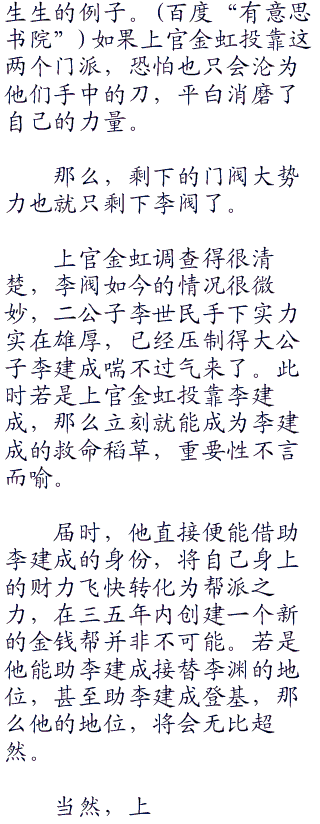 生生的例子。(百度“有意思
书院”)如果上官金虹投靠这
两个门派，恐怕也只会沦为
他们手中的刀，平白消磨了
自己的力量。
那么，剩下的门阀大势
力也就只剩下李阀了。
上官金虹调查得很清
楚，李阀如今的情况很微
妙，二公子李世民手下实力
实在雄厚，已经压制得大公
子李建成喘不过气来了。此
时若是上官金虹投靠李建
成，那么立刻就能成为李建
成的救命稻草，重要性不言
而喻。
届时，他直接便能借助
李建成的身份，将自己身上
的财力飞快转化为帮派之
力，在三五年内创建一个新
的金钱帮并非不可能。若是
他能助李建成接替李渊的地
位，甚至助李建成登基，那
么他的地位，将会无比超
然。
当然，上